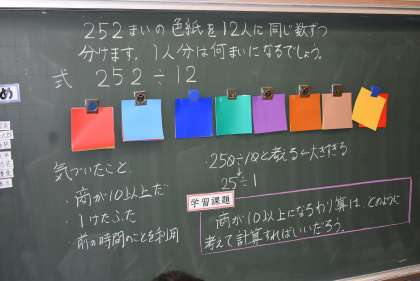 252まいの色紙を12人に同じ数ずつ
分けます。1人分は何まいになるでしょう。
式 252÷12
め
気づいたこと
・商が10以上だ
・1けたふえた
・前の時間のことを利用
・250÷10と考える←大きすぎる
25÷1
学習課題
商が10以上になるわり算は、どのように
考えて計算すればいいだろう。